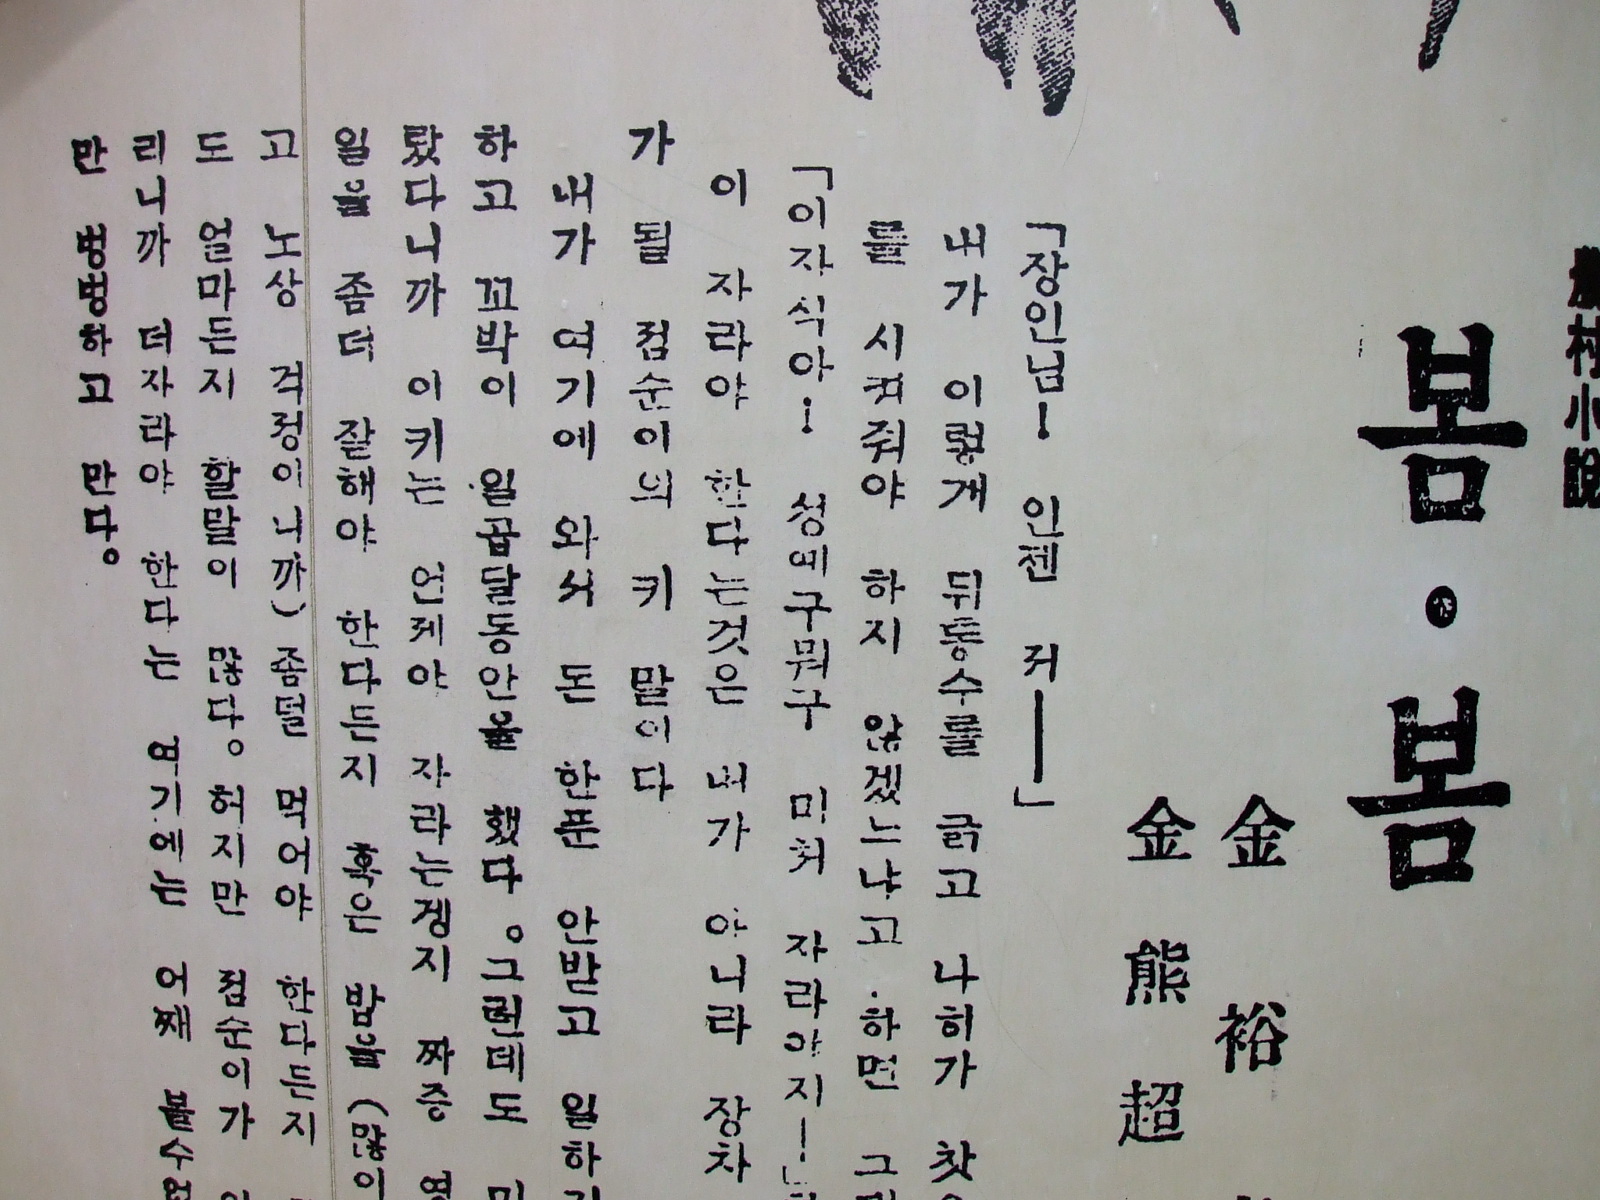 農村小說
봄·봄
金裕
金熊超
「장인님! 인젠 저——」
내가 이렇게 뒤통수를 긁고 나히가 찻
를 시켜줘야 하지 않겠느냐고 하면 그
「이자식아! 성예구뭐구 미처 자라야지!」
이 자라야 한다는것은 내가 아니라 장차
가 될 점순이의 키 말이다
내가 여기에 와서 돈 한푼 안받고 일하
하고 꼬박이 일곱달동안을 했다。그런데도
랐다니까 이키는 언제야 자라는겐지 짜증
일을 좀더 잘해야 한다든지 혹은 밥을 (많이
고 노상 걱정이니까) 좀덜 먹어야 한다든지
도 얼마든지 할말이 많다。허지만 점순이가
리니까 더자라야 한다는 여기에는 어째 볼수
만 벙벙하고 만다。